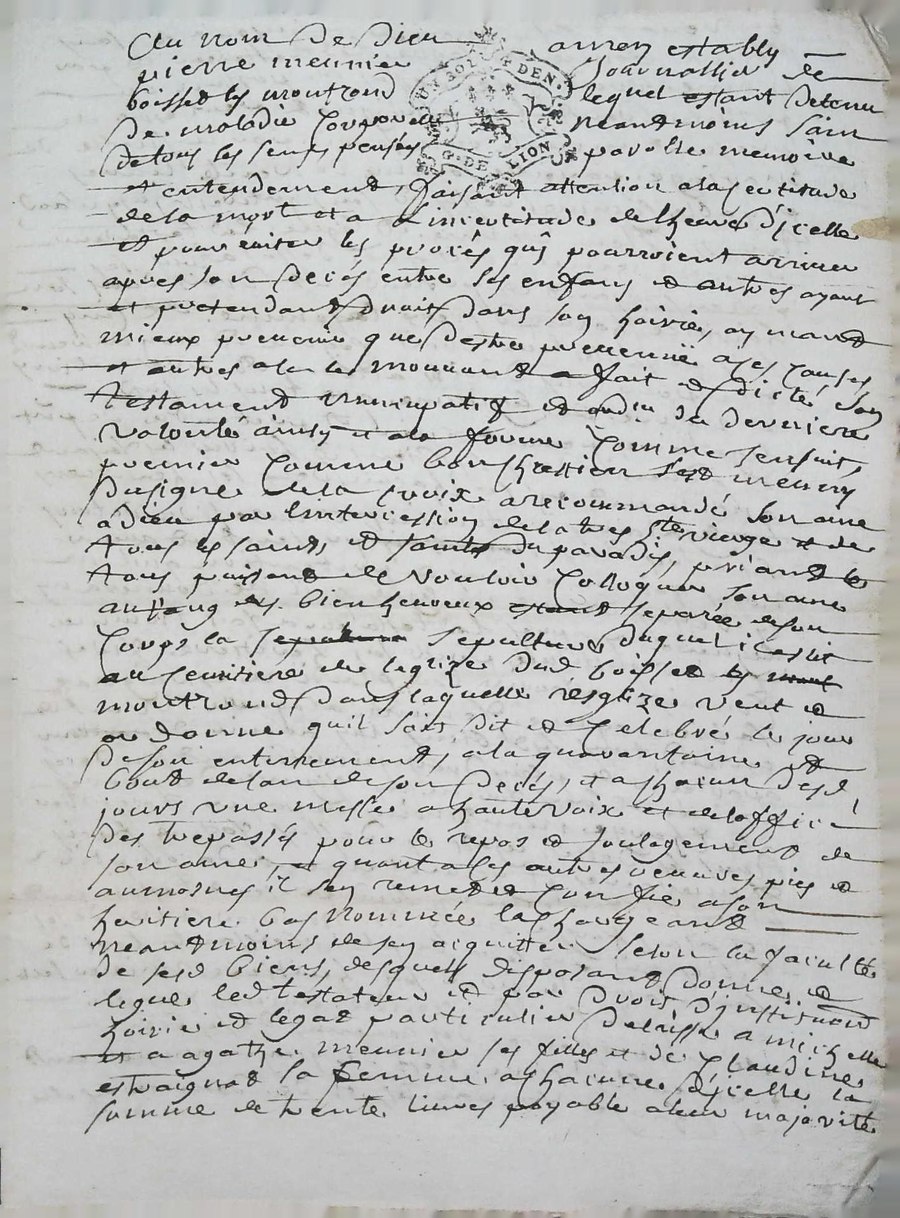 Au nom de dieu amen estably
pierre meunier Journallier de
boisset les montrond lequel estant detenu
DEUX SOLS G. DEN.
G. DE LION
de maladie Corporelle neantmoins sain
de tous les sens pensés parolle memoire
et entendement, faisant attention a la Certitude
de la mort et a L'incertitude de lheure d'jcelle
et pour eviter les procès quj pourroient arriver
apres son decés entre ses enfans et autres ayant
et pretendant droit dans son hoirie, aymant
mieux prevenir que destre prevenu a ses Causes
et autres a ce le mouvant a fait et dicté son
testament nuncupatif et ordre de derniere
volonté ainsy et a la forme Comme sensuit,
premier Comme bon Chrestien sest muny
du signe de la croix a recommandé son ame
a dieu par lintercession de la tres ste vierge et de
tous les saints et saintes du paradis, priant le
tous puissant de vouloir Colloquer son ame
au rang des bienheureux estant separée de son
Corps la sepulture duquel il eslit
au Cemitiere de leglize dud boisset les mont
montrond dans laquelle esglize veut et
ordonne quil soit dit et Celebré le jour
de son enterrement, a la quarantaine et
bout de lan de son decés, et a chacun desd
jours une messe a haute voix et de loffice
des trepassés pour le repos et soulagement de
son ame, et quant a ses autres œuvres pies et
aumosnes il sen remet et Confie a son
heritiere bas nommée la Chargeant
neantmoins de sen acquitter selon la faculté
de sesd biens, desquels disposant donne et
legue led testateur et par droit d'institution
hoirie et legat particulier delaisse a michelle
et a agathe meunier ses filles et de Claudine
sa femme a chacune d'jcelle la
somme de trente livres payable a leur majorité